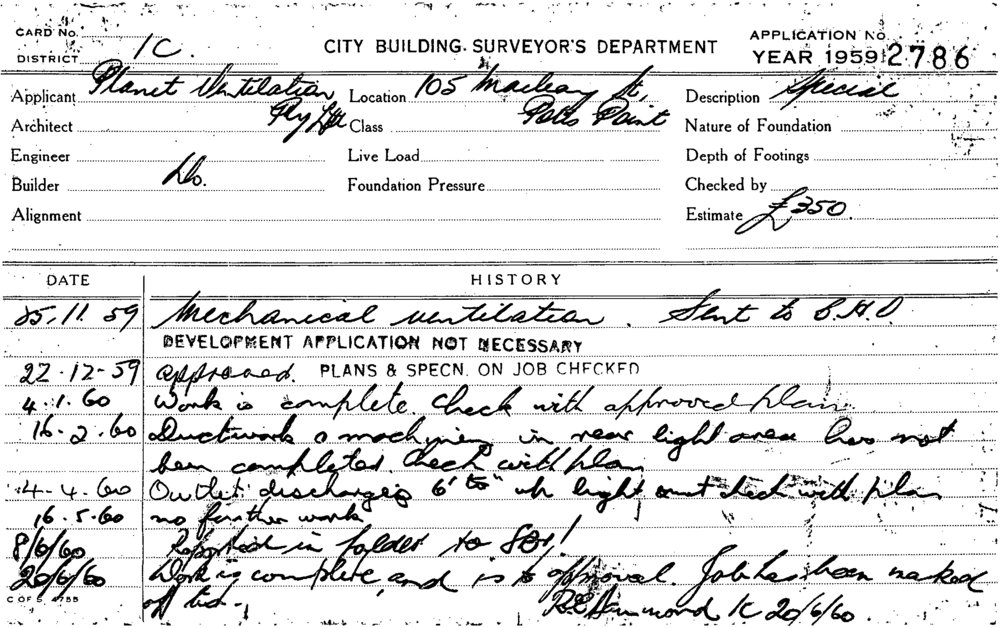 CARD No.
DISTRICT 1C
CITY BUILDING SURVEYOR'S DEPARTMENT
APPLICATION No.
YEAR 1959 2786
Applicant Planet Ventilation Pty Ltd
Location 105 Macleay St, Potts Point
Description Special
Architect
Class
Nature of Foundation
Engineer
Live Load
Depth of Footings
Builder Do.
Foundation Pressure
Checked by
Alignment
Estimate £350.
DATE HISTORY
25.11.59 Mechanical ventilation. Sent to
DEVELOPMENT APPLICATION NOT NECESSARY
22-12-59 approved. PLANS & SPECN. ON JOB CHECKED
4.1.60 Work is complete. Check with approved plan
16.2.60 Ductwork & machinery in rear light area has not
been completed. Check with plan
4-4.60 Outlet discharges 6' light check with plan
16.5.60 no further work
8/6/60 in folder to
20/6/60 Work is complete and is to approval. Job has been marked
off
R.E. Hammond 1C 20/6/60.
C OF S. 4755